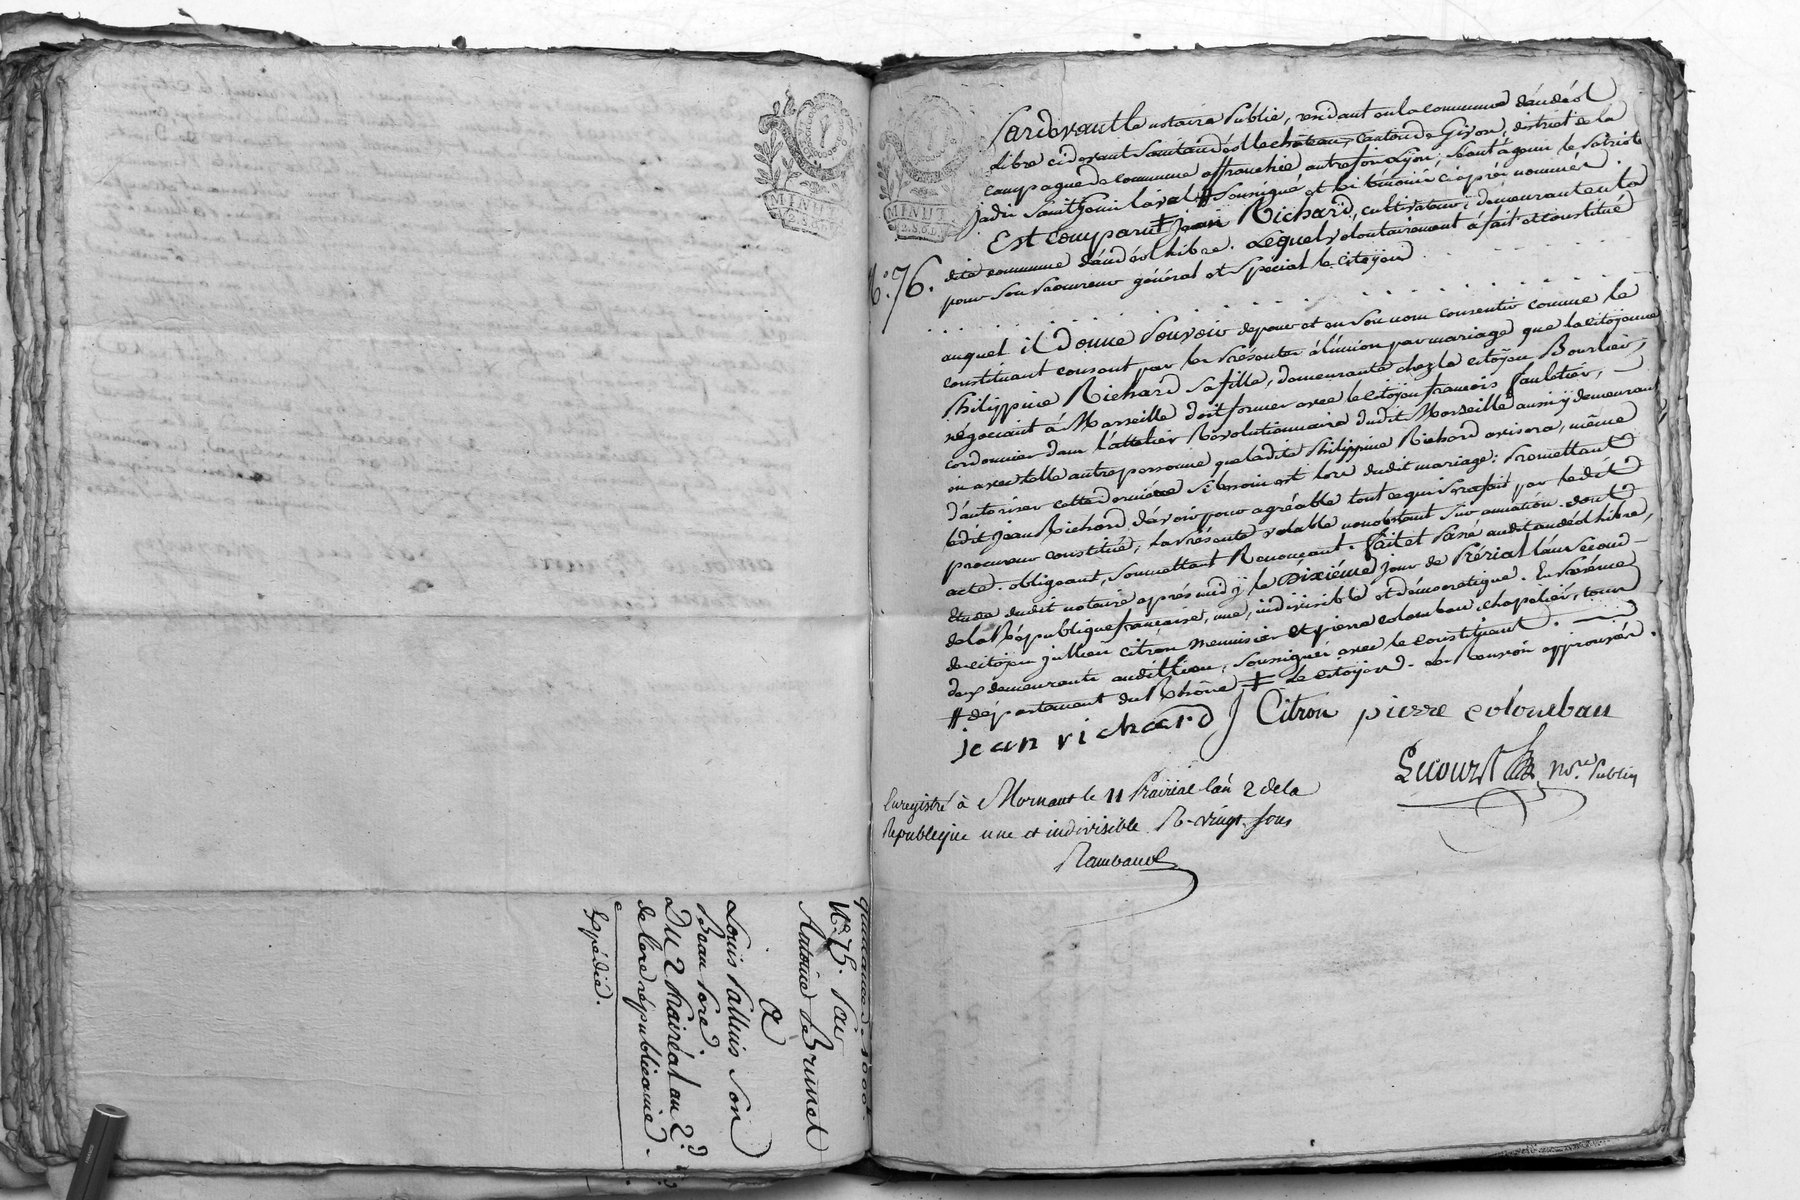 quittance de 1000#
N.° 75. Par
Antoine Brunel
a
Louis Palluis Son
Beau Pere.
Du 2 Prairéal an 2.d
de l'ere républicaine.
Expédié.
MINUT.
12.S.O.L.
MINUT.
12.S.O.L.
N.° 76.
Pardevant le notaire Public, residant en la commune d'andéol
Libre cidevant Saint andéol le chateau, canton de Givors, district de la
campagne de commune affranchie autrefois Lyon, séant à genis le Patriote
jadis Saint Genis Laval # Soussigné et les témoins ciaprès nommés
Est comparut ‡ jean Richard, cultivateur, demeurant en la
dite commune d'andéol Libre. Lequel volontairement à fait et constitué
pour son Procureur général et Spécial le citoyen
auquel il Donne Pouvoir de pour et en son nom consentir comme le
constituant consent par les Présentes à l'union par mariage que la citoyenne
Philippine Richard sa fille, demeurante chez le citoyen Bourlier,
négociant à Marseille doit former avec le citoyen francois Pauletier,
cordonnier dans l'attelier Révolutionnaire dudit Marseille aussi y demeurant
ou avec telle autre personne que ladite Philippine Richard avisera, même
d'autoriser cette dernière si besoin est lors dudit mariage: Promettant
ledit jean Richard d'avoir pour agréable tout ce qui sera fait par ledit
procureur constitué, la Présente valable nonobstant Sur annation. dont
acte. obligeant, Soumettant Renonçant. fait et Passé audit andéol Libre,
Etude dudit notaire après midy le Dixiéme jour de Prérial l'an Second
de la République française, une, indivisible et démocratique. En Présence
du citoyen jullien citron Menuisier et pierre colomban chapelier, tous
deux demeurants audit lieu, Soussignés avec le constituant.
# département du Rhône ‡ Le citoyen. Les Renvois approuvés.
jean richard J Citron pierre colomban
Lecourt No.re Public
Enregistré à Mornant le 11 Prairial l'an 2 de la
Republeque une et indivisible R. vingt sous
Rambaud